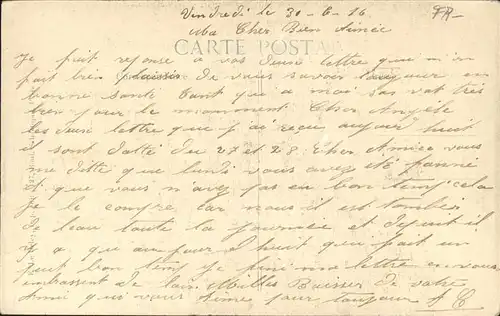 Vendredi le 30-6-16
FR-
Ma Cher Bien Aimée
CARTE POSTALE
Je fait reponse a vos deuse lettre que m'on
fait très plaissir de vous savoir toujour en
bonne santé tant que a moi sas vat très
bien pour le momment Cher Angèle
les deuse lettre que j'ai reçu aujour huit
il sont datté du 27 et 28 Cher Aimée vous
me ditte que lundi vous avez été panné
et que vous n'avez pas eu bon temp cela
je le compre car nous il est tombés
de leau toute la journée et depuit il
y a que aujour d huit que fait un
petit bon temp Je fini ma lettre en vous
embrassent de loin Milles Baisser de votre
Ami qui vous aime pour toujour A C